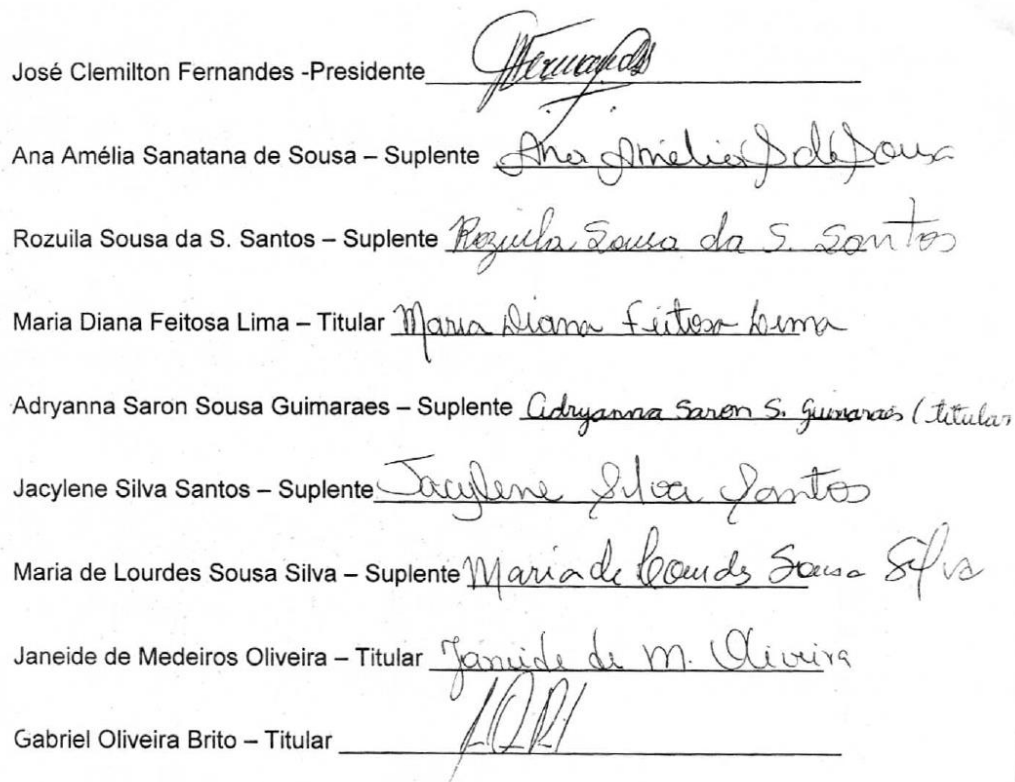 José Clemilton Fernandes -Presidente Fernandes
Ana Amélia Sanatana de Sousa – Suplente Ana Amelia S de Sousa
Rozuila Sousa da S. Santos – Suplente Rozuila Sousa da S. Santos
Maria Diana Feitosa Lima – Titular Maria Diana Feitosa Lima
Adryanna Saron Sousa Guimaraes – Suplente Adryanna Saron S. Guimaraes (titular
Jacylene Silva Santos – Suplente Jacylene Silva Santos
Maria de Lourdes Sousa Silva – Suplente Maria de Lourdes Sousa Silva
Janeide de Medeiros Oliveira – Titular Janeide de M. Oliveira
Gabriel Oliveira Brito – Titular